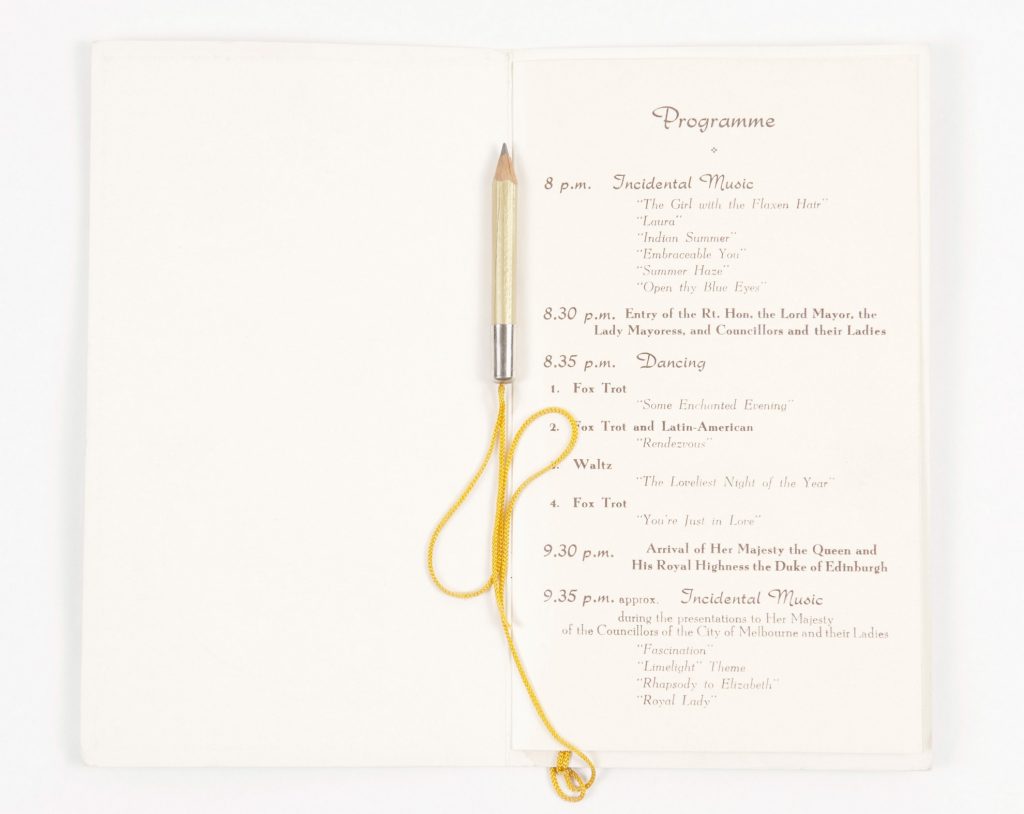 Programme
8 p.m. Incidental Music
"The Girl with the Flaxen Hair"
"Laura"
"Indian Summer"
"Embraceable You"
"Summer Haze"
"Open thy Blue Eyes"
8.30 p.m. Entry of the Rt. Hon. the Lord Mayor, the
Lady Mayoress, and Councillors and their Ladies
8.35 p.m. Dancing
1. Fox Trot
"Some Enchanted Evening"
2. Fox Trot and Latin-American
"Rendezvous"
3. Waltz
"The Loveliest Night of the Year"
4. Fox Trot
"You're Just in Love"
9.30 p.m. Arrival of Her Majesty the Queen and
His Royal Highness the Duke of Edinburgh
9.35 p.m. approx. Incidental Music
during the presentations to Her Majesty
of the Councillors of the City of Melbourne and their Ladies
"Fascination"
"Limelight" Theme
"Rhapsody to Elizabeth"
"Royal Lady"